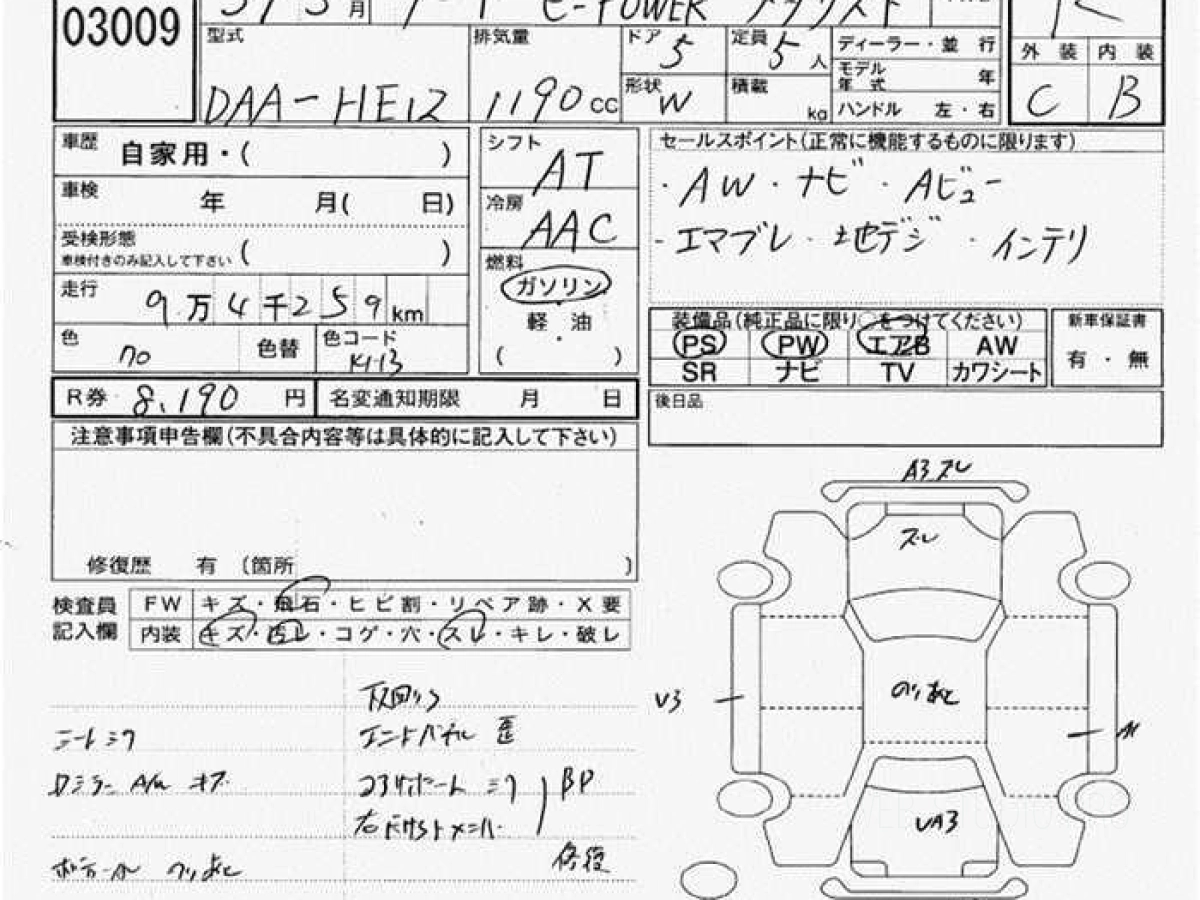 03009
月 e-POWER メダリスト
型式 排気量 ドア 5 定員 5 人 ディーラー・並 行
外 装 内 装
モデル年 式 年
DAA-HE12 1190 cc 形状 W 積載 kg ハンドル 左・右
C B
車歴 自家用・( )
シフト AT
セールスポイント(正常に機能するものに限ります)
車検 年 月( 日)
冷房 AAC
・AW・ナビ・Aビュー
受検形態 ( )
車検付きのみ記入して下さい
・エマブレ・地デジ・インテリ
走行 9万4千259km
燃料 ガソリン
軽 油
( )
色 色替 色コード
装備品(純正品に限り○をつけてください)
新車保証書
PS PW エアB AW
有・無
SR ナビ TV カワシート
R券 8,190 円 名変通知期限 月 日
後日品
注意事項申告欄(不具合内容等は具体的に記入して下さい)
修復歴 有 (箇所 )
A3 スレ
スレ
検査員記入欄
FW キズ・飛石・ヒビ割・リペア跡・X要
内装 キズ・汚レ・コゲ・穴・スレ・キレ・破レ
のりあと
V3
エンドパネル 歪
キズ
BP
UA3
修復
のりあと